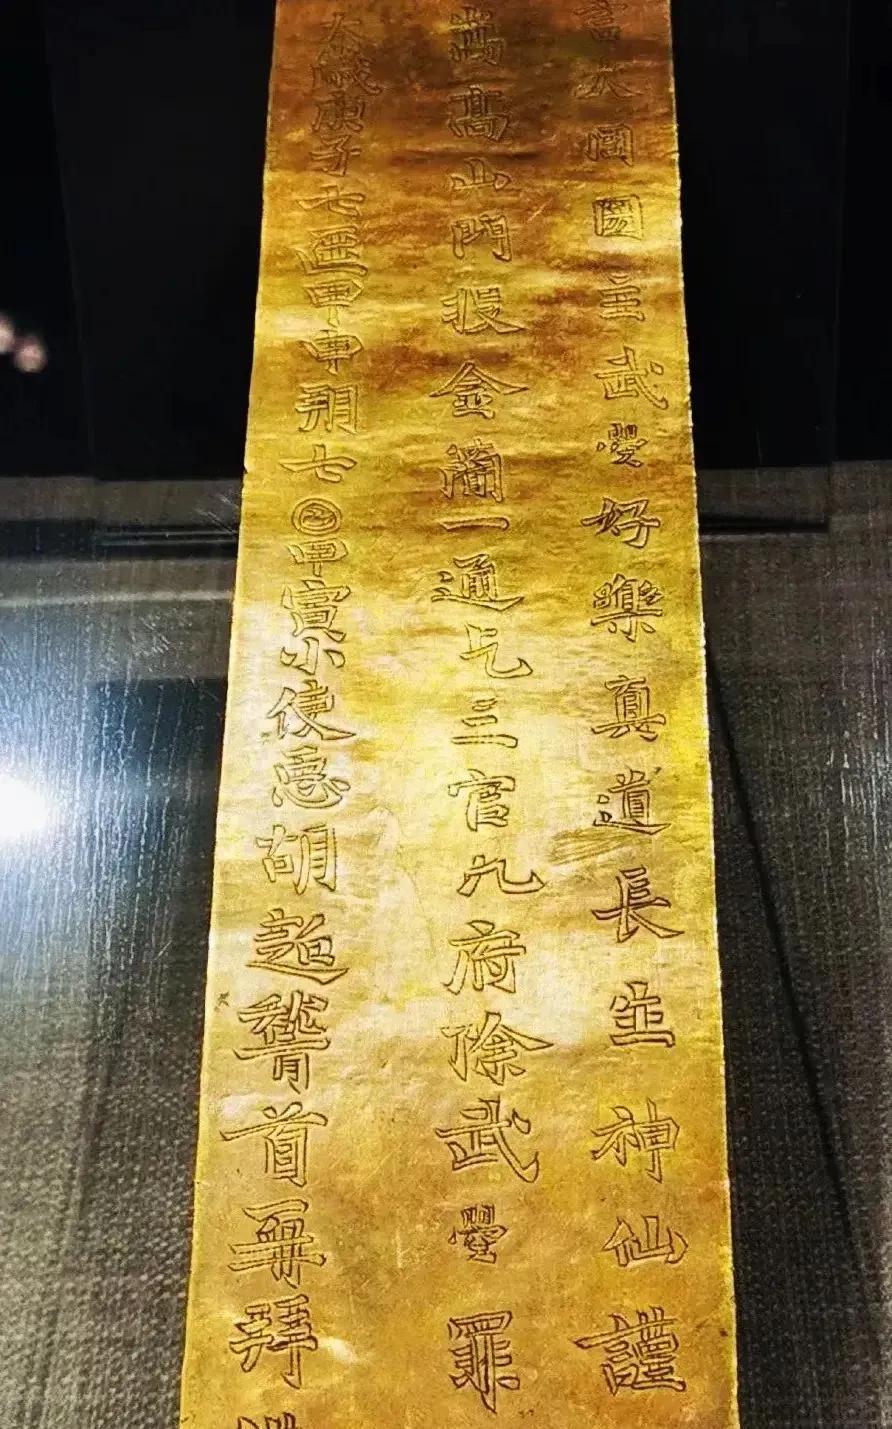 言大周圀主武曌好樂真道長生神仙謹
嵩高山門投金簡一通乞三官九府除武曌罪
太歲庚子七𠥱甲申朔七𡆠甲寅小使𢘑胡超稽首再拜